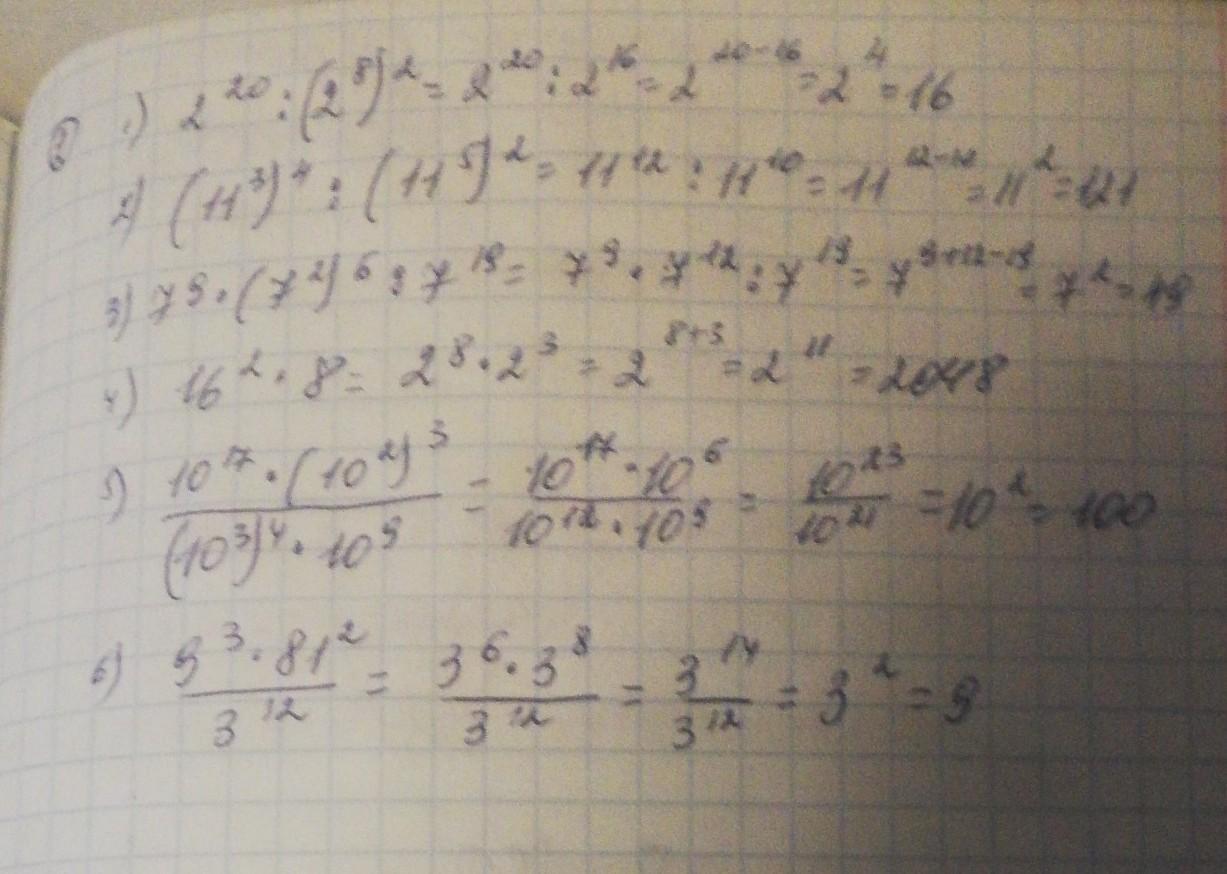 6) 1) 2^20 : (2^8)^2 = 2^20 : 2^16 = 2^20-16 = 2^4 = 16
2) (11^3)^4 : (11^5)^2 = 11^12 : 11^10 = 11^12-10 = 11^2 = 121
3) 7^9 · (7^2)^6 : 7^19 = 7^9 · 7^12 : 7^19 = 7^9+12-19 = 7^2 = 49
4) 16^2 · 8 = 2^8 · 2^3 = 2^8+3 = 2^11 = 2048
5) 10^17 · (10^2)^3 / (10^3)^4 · 10^9 = 10^17 · 10^6 / 10^12 · 10^9 = 10^23 / 10^21 = 10^2 = 100
6) 9^3 · 81^2 / 3^12 = 3^6 · 3^8 / 3^12 = 3^14 / 3^12 = 3^2 = 9